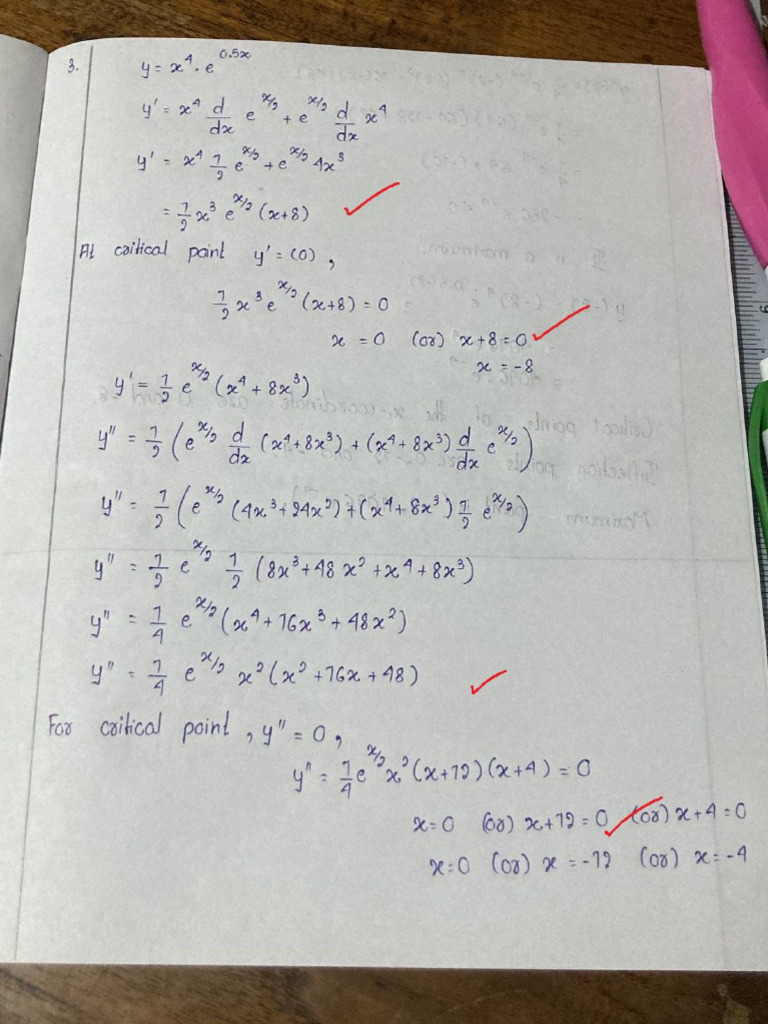 3. y = x⁴. e^0.5x
y' = x⁴ d/dx e^x/2 + e^x/2 d/dx x⁴
y' = x⁴ 1/2 e^x/2 + e^x/2 4x³
= 1/2 x³ e^x/2 (x+8)
At critical point y' = (0),
1/2 x³ e^x/2 (x+8) = 0
x = 0 (or) x+8 = 0
x = -8
y' = 1/2 e^x/2 (x⁴ + 8x³)
y'' = 1/2 (e^x/2 d/dx (x⁴+8x³) + (x⁴+8x³) d/dx e^x/2)
y'' = 1/2 (e^x/2 (4x³+24x²) + (x⁴+8x³) 1/2 e^x/2)
y'' = 1/2 e^x/2 1/2 (8x³+48x²+x⁴+8x³)
y'' = 1/4 e^x/2 (x⁴+16x³+48x²)
y'' = 1/4 e^x/2 x² (x²+16x+48)
For critical point, y'' = 0,
y'' = 1/4 e^x/2 x² (x+12)(x+4) = 0
x=0 (or) x+12=0 (or) x+4=0
x=0 (or) x = -12 (or) x = -4